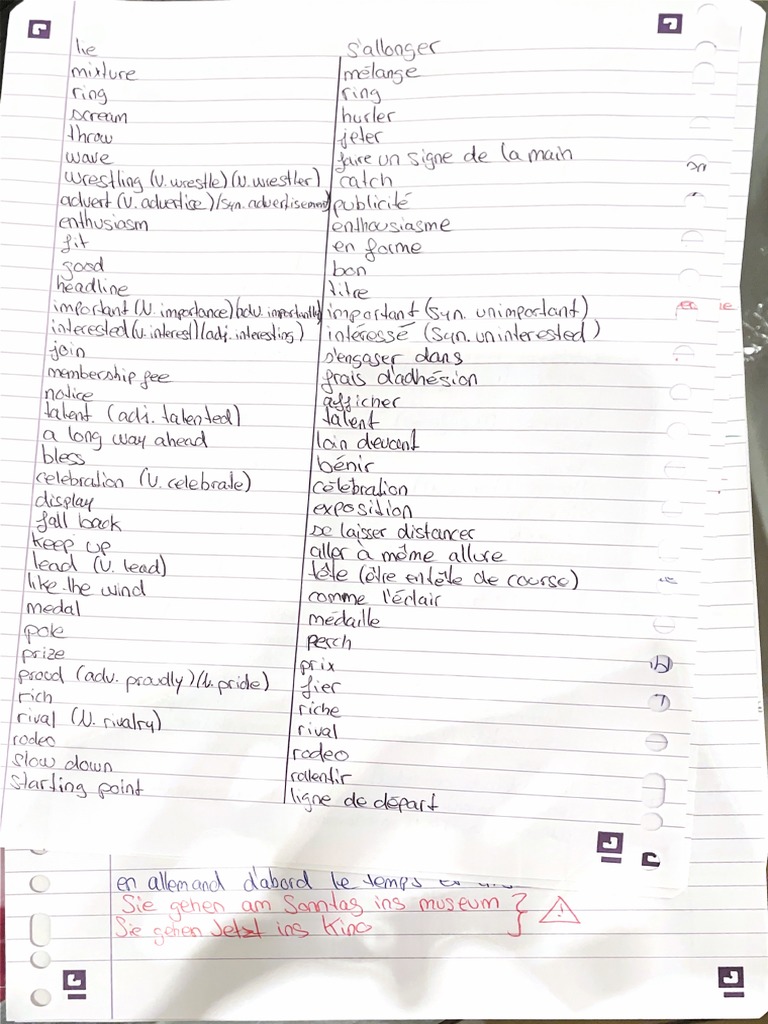 lie s'allonger
mixture mélange
ring ring
scream hurler
throw jeter
wave faire un signe de la main
wrestling (v. wrestle) (N. wrestler) catch
advert (v. advertice) / syn. advertisement) publicité
enthusiasm enthousiasme
fit en forme
good bon
headline titre
important (N. importance) (adv. importantly) important (syn. unimportant)
interested (v. interest) (adj. interesting) intéressé (syn. uninterested)
join s'engager dans
membership fee frais d'adhésion
notice afficher
talent (adj. talented) talent
a long way ahead loin devant
bless bénir
celebration (v. celebrate) célébration
display exposition
fall back se laisser distancer
keep up aller à même allure
lead (v. lead) tête (être en tête de course)
like the wind comme l'éclair
medal médaille
pole perch
prize prix
proud (adv. proudly) (N. pride) fier
rich riche
rival (N. rivalry) rival
rodeo rodeo
slow down ralentir
starting point ligne de départ
en allemand d'abord le temps
Sie gehen am Sonntag ins museum
Sie gehen Jetzt ins Kino